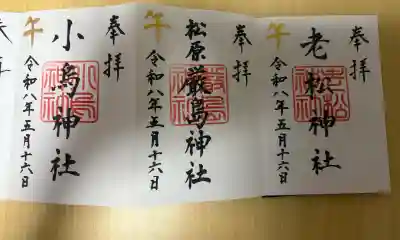 奉拝
老松神社
午
令和八年五月十六日
奉拝
松原厳島神社
午
令和八年五月十六日
奉拝
小烏神社
午
令和八年五月十六日